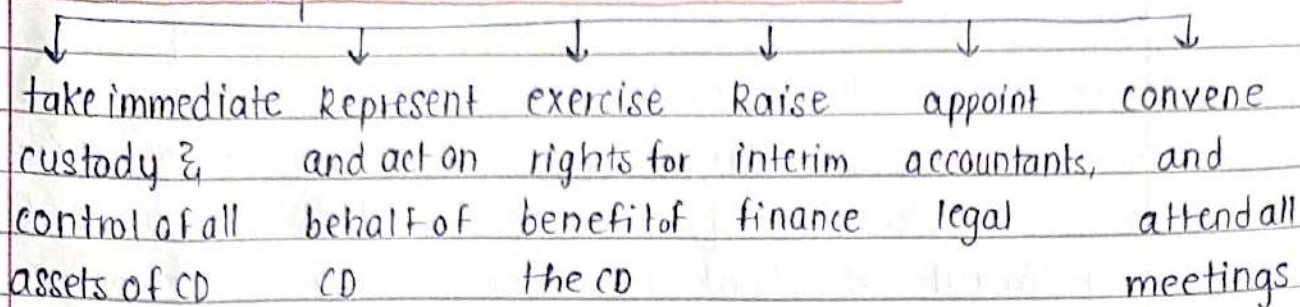 take immediate custody & control of all assets of CD
Represent and act on behalf of CD
exercise rights for benefit of the CD
Raise interim finance
appoint accountants, legal
convene and attend all meetings